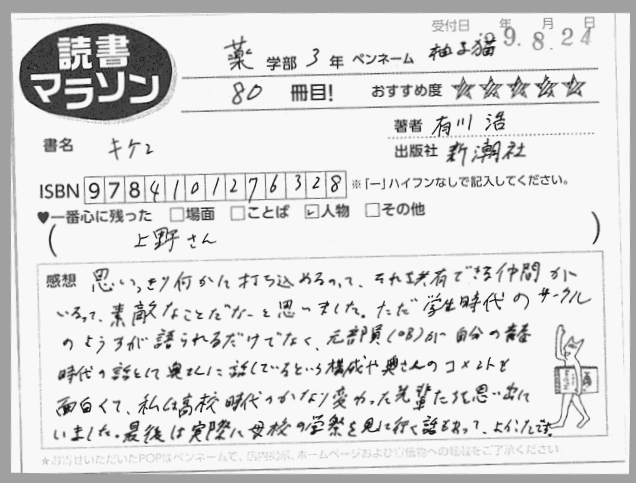 読書
マラソン
受付日 年 月 日
'19.8.24
薬 学部 3 年 ペンネーム 柚子猫
80 冊目! おすすめ度 ☆☆☆☆☆
書名 キケン
著者 有川 浩
出版社 新潮社
ISBN 9784101276328 ※「-」ハイフンなしで記入してください。
♥一番心に残った □場面 □ことば ☑人物 □その他
( 上野さん )
感想 思いっきり何かに打ち込めるって、それを共有できる仲間が
いるって、素敵なことだなーと思いました。ただ学生時代のサークル
のようすが語られるだけでなく、元部員(OB)が自分の青春
時代の話として奥さんに話しているという構成や奥さんのコメントも
面白くて、私は高校時代のかなり変わった先輩たちを思い出して
いました。最後は実際に母校の学祭を見に行く話もあって、よかったです。
★お寄せいただいたPOPはペンネームで、店内掲示、ホームページおよび宣伝物への転載をご了承ください。